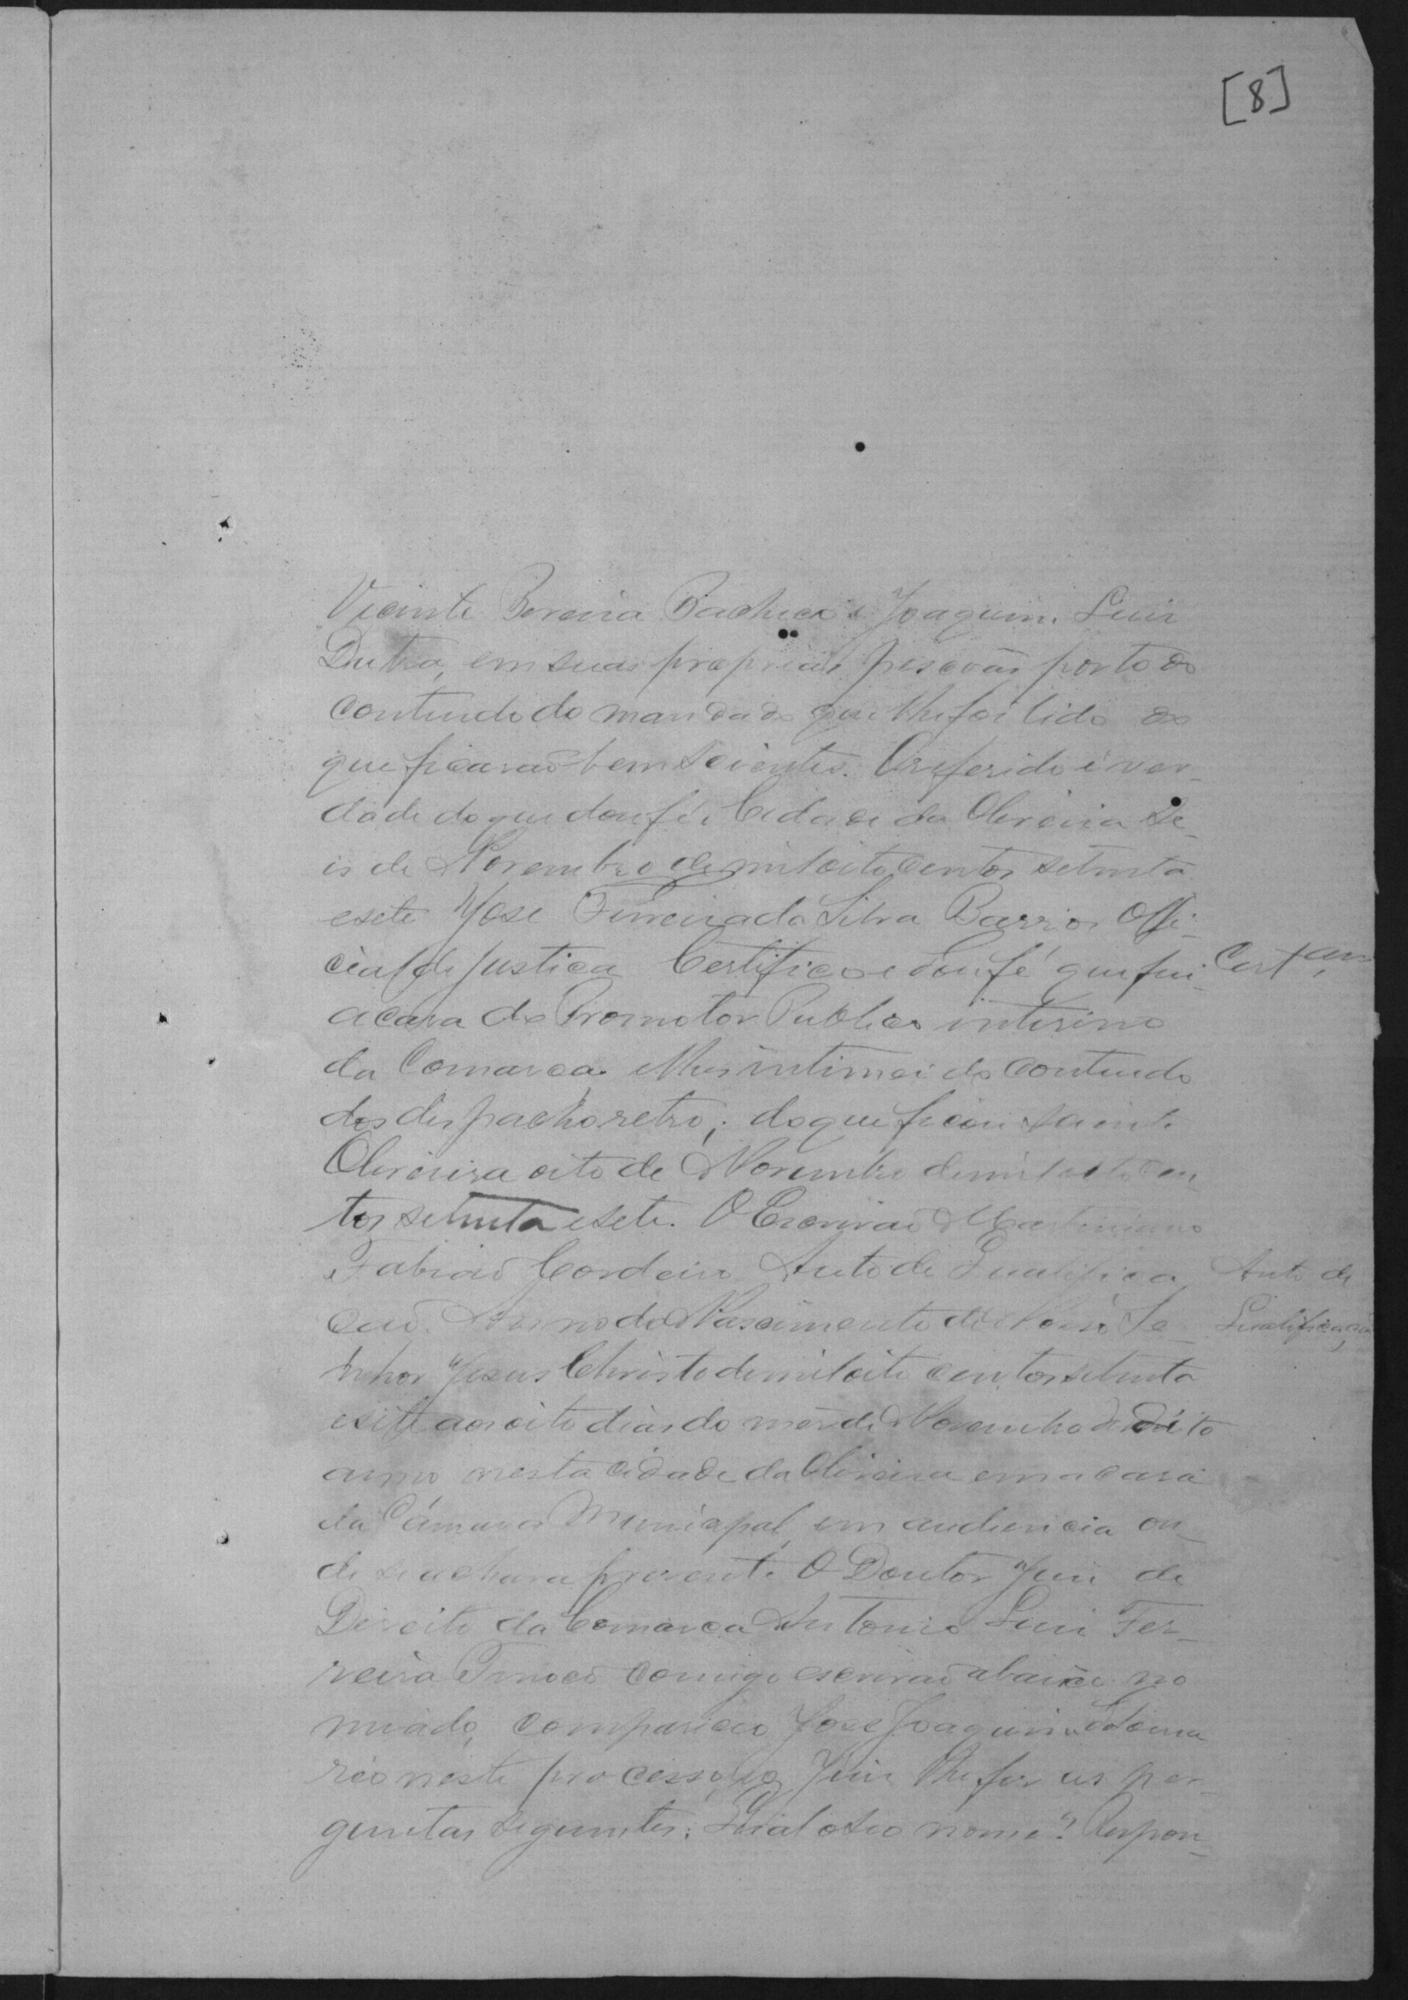 [8]
Vicente Pereira Pacheco e Joaquim Luis
Dutra, em suas proprias pesoas por todo
contiudo do mandado que lhe foi lido do
que ficarão bem scientes. O referido é ver-
dade do que dou fé. Cidade da Oliveira se-
is de Novembro de mil oito centos setenta
e sete José Ferreira da Silva Barros Offi-
cial de Justica Certifico e dou fé que fui
Cert.am
a casa do Promotor Publico interino
da Comarca intimei do contiudo
dos despacho retro, do que ficou sciente
Oliveira oito de Novembro de mil oito cen-
tos setenta e sete. O Escrivão Martiniano
Fabião Cordeiro Auto de Qualifica
Auto de
Qualificação
ção. Anno do Nascimento de Nosso Se-
nhor Jesus Christo de mil oito centos setenta
e sete aos oito dias do mes de Novembro do dito
anno nesta cidade da Oliveira em a casa
da Cámara Municipal, em audiencia on-
de se achava presente O Doutor Juis de
Direito da Comarca Antonio Luis Fer-
reira Tinoco comigo escrivão abaixo no
miado, compareceo José Joaquim
reo neste processo, o Juis lhe fes as per-
guntas seguintes: Qual o seo nome? Respon-